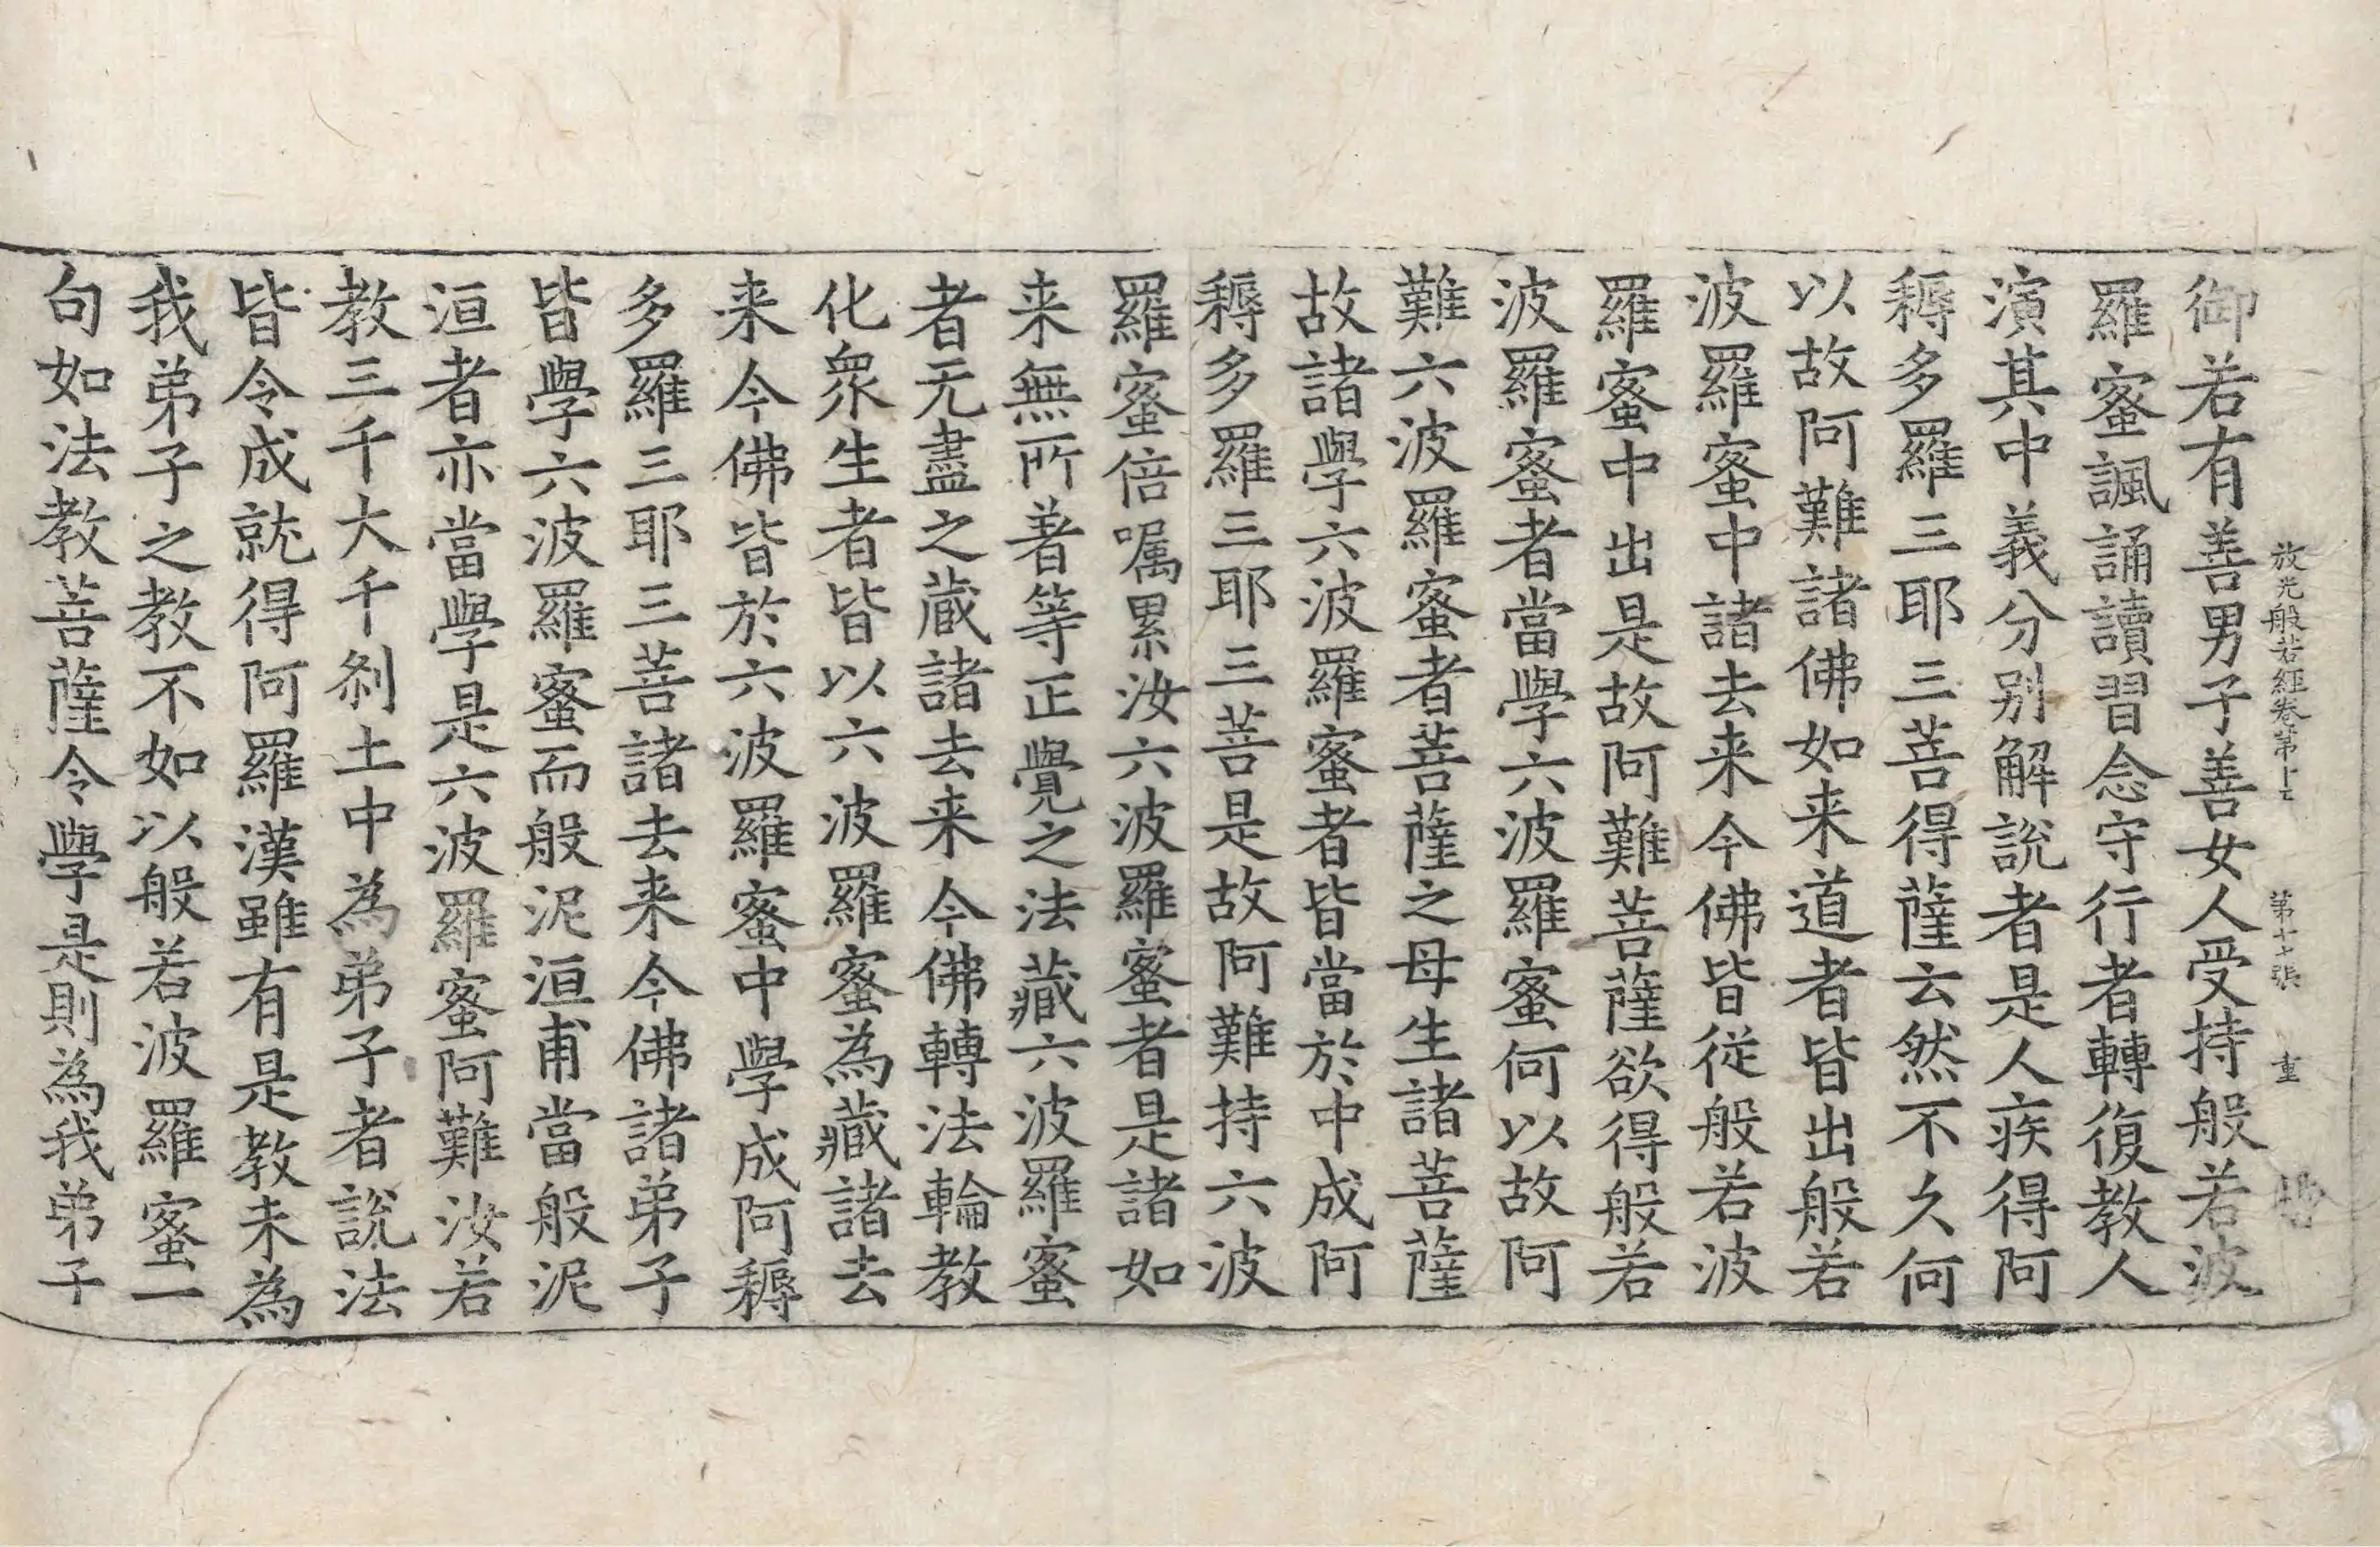 放光般若經卷第十七 第十七張 重
御若有善男子善女人受持般若波
羅蜜諷誦讀習念守行者轉復教人
演其中義分别解說者是人疾得阿
耨多羅三耶三菩得薩云然不久何
以故阿難諸佛如来道者皆出般若
波羅蜜中諸去来今佛皆從般若波
羅蜜中出是故阿難菩薩欲得般若
波羅蜜者當學六波羅蜜何以故阿
難六波羅蜜者菩薩之母生諸菩薩
故諸學六波羅蜜者皆當於中成阿
耨多羅三耶三菩是故阿難持六波
羅蜜倍嘱累汝六波羅蜜者是諸如
来無所著等正覺之法藏六波羅蜜
者无盡之蔵諸去来今佛轉法輪教
化衆生者皆以六波羅蜜為藏諸去
来今佛皆於六波羅蜜中學成阿耨
多羅三耶三菩諸去来今佛諸弟子
皆學六波羅蜜而般泥洹甫當般泥
洹者亦當學是六波羅蜜阿難汝若
教三千大千刹土中為弟子者說法
皆令成就得阿羅漢雖有是教未為
我弟子之教不如以般若波羅蜜一
句如法教菩薩令學是則為我弟子